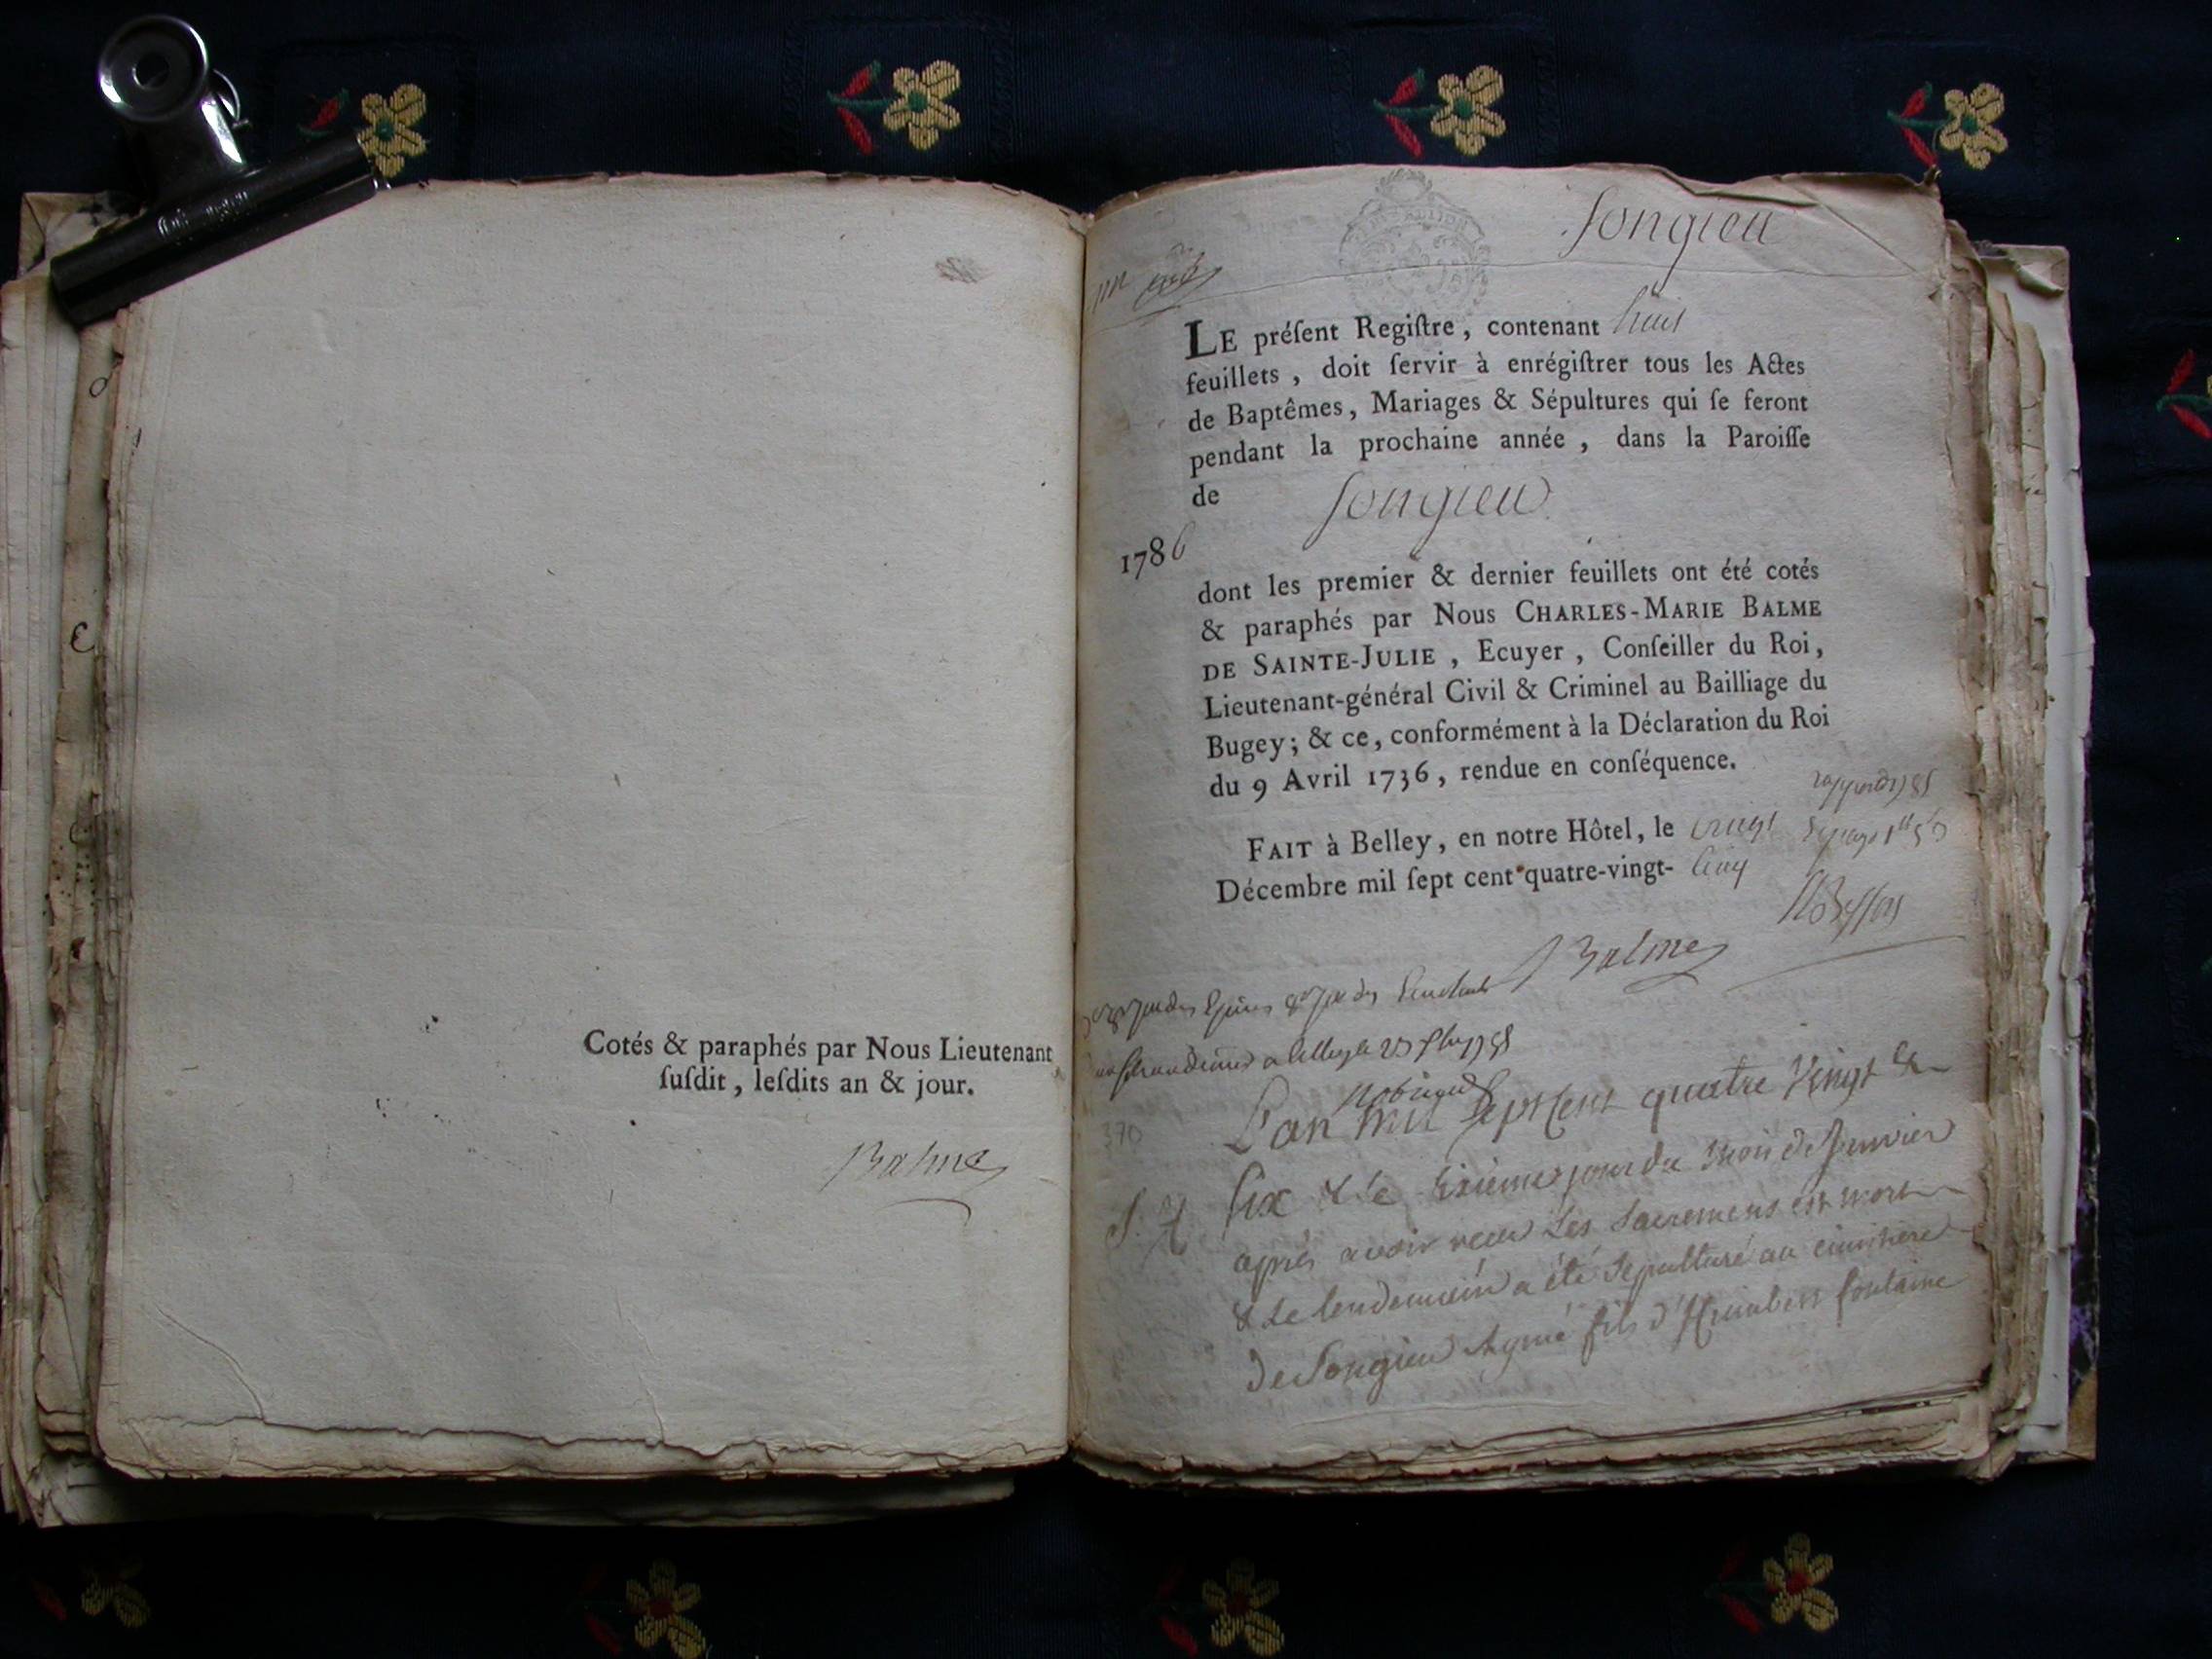 Cotés & paraphés par Nous Lieutenant
ſuſdit, leſdits an & jour.
Balme
Songieu
LE préſent Regiſtre, contenant huit
feuillets, doit ſervir à enrégiſtrer tous les Actes
de Baptêmes, Mariages & Sépultures qui ſe feront
pendant la prochaine année, dans la Paroiſſe
de Songieu
1786
dont les premier & dernier feuillets ont été cotés
& paraphés par Nous CHARLES-MARIE BALME
DE SAINTE-JULIE, Ecuyer, Conſeiller du Roi,
Lieutenant-général Civil & Criminel au Bailliage du
Bugey; & ce, conformément à la Déclaration du Roi
du 9 Avril 1736, rendue en conſéquence.
FAIT à Belley, en notre Hôtel, le vingt
Décembre mil ſept cent quatre-vingt- cinq
Balme
370
L'an mil sept cent quatre vingt &
six & le sixieme jour du mois de Janvier
après avoir recu les sacremens est mort
& le lendemain a été sepulturé au cimitiere
de Songieu fils d'Humbert fontaine